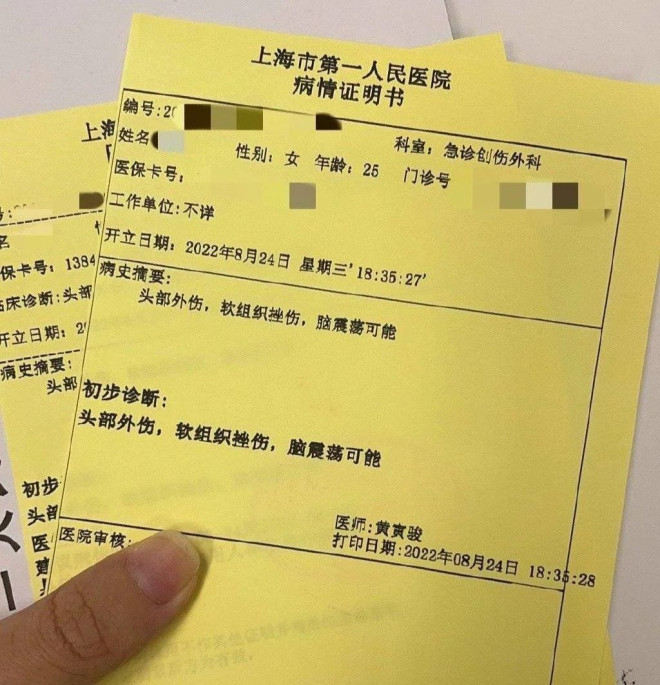 上海市第一人民医院
病情证明书
编号:2
姓名
性别: 女 年龄: 25
科室: 急诊创伤外科
医保卡号:
门诊号
工作单位:不详
开立日期: 2022年8月24日 星期三'18:35:27'
病史摘要:
头部外伤, 软组织挫伤, 脑震荡可能
初步诊断:
头部外伤, 软组织挫伤, 脑震荡可能
医师:黄寅骏
医院审核:
打印日期:2022年08月24日 18:35:28
上海
号:
名
保卡号: 1384
临床诊断:头部
开立日期: 2
病史摘要:
头部
初步
头部
医
建